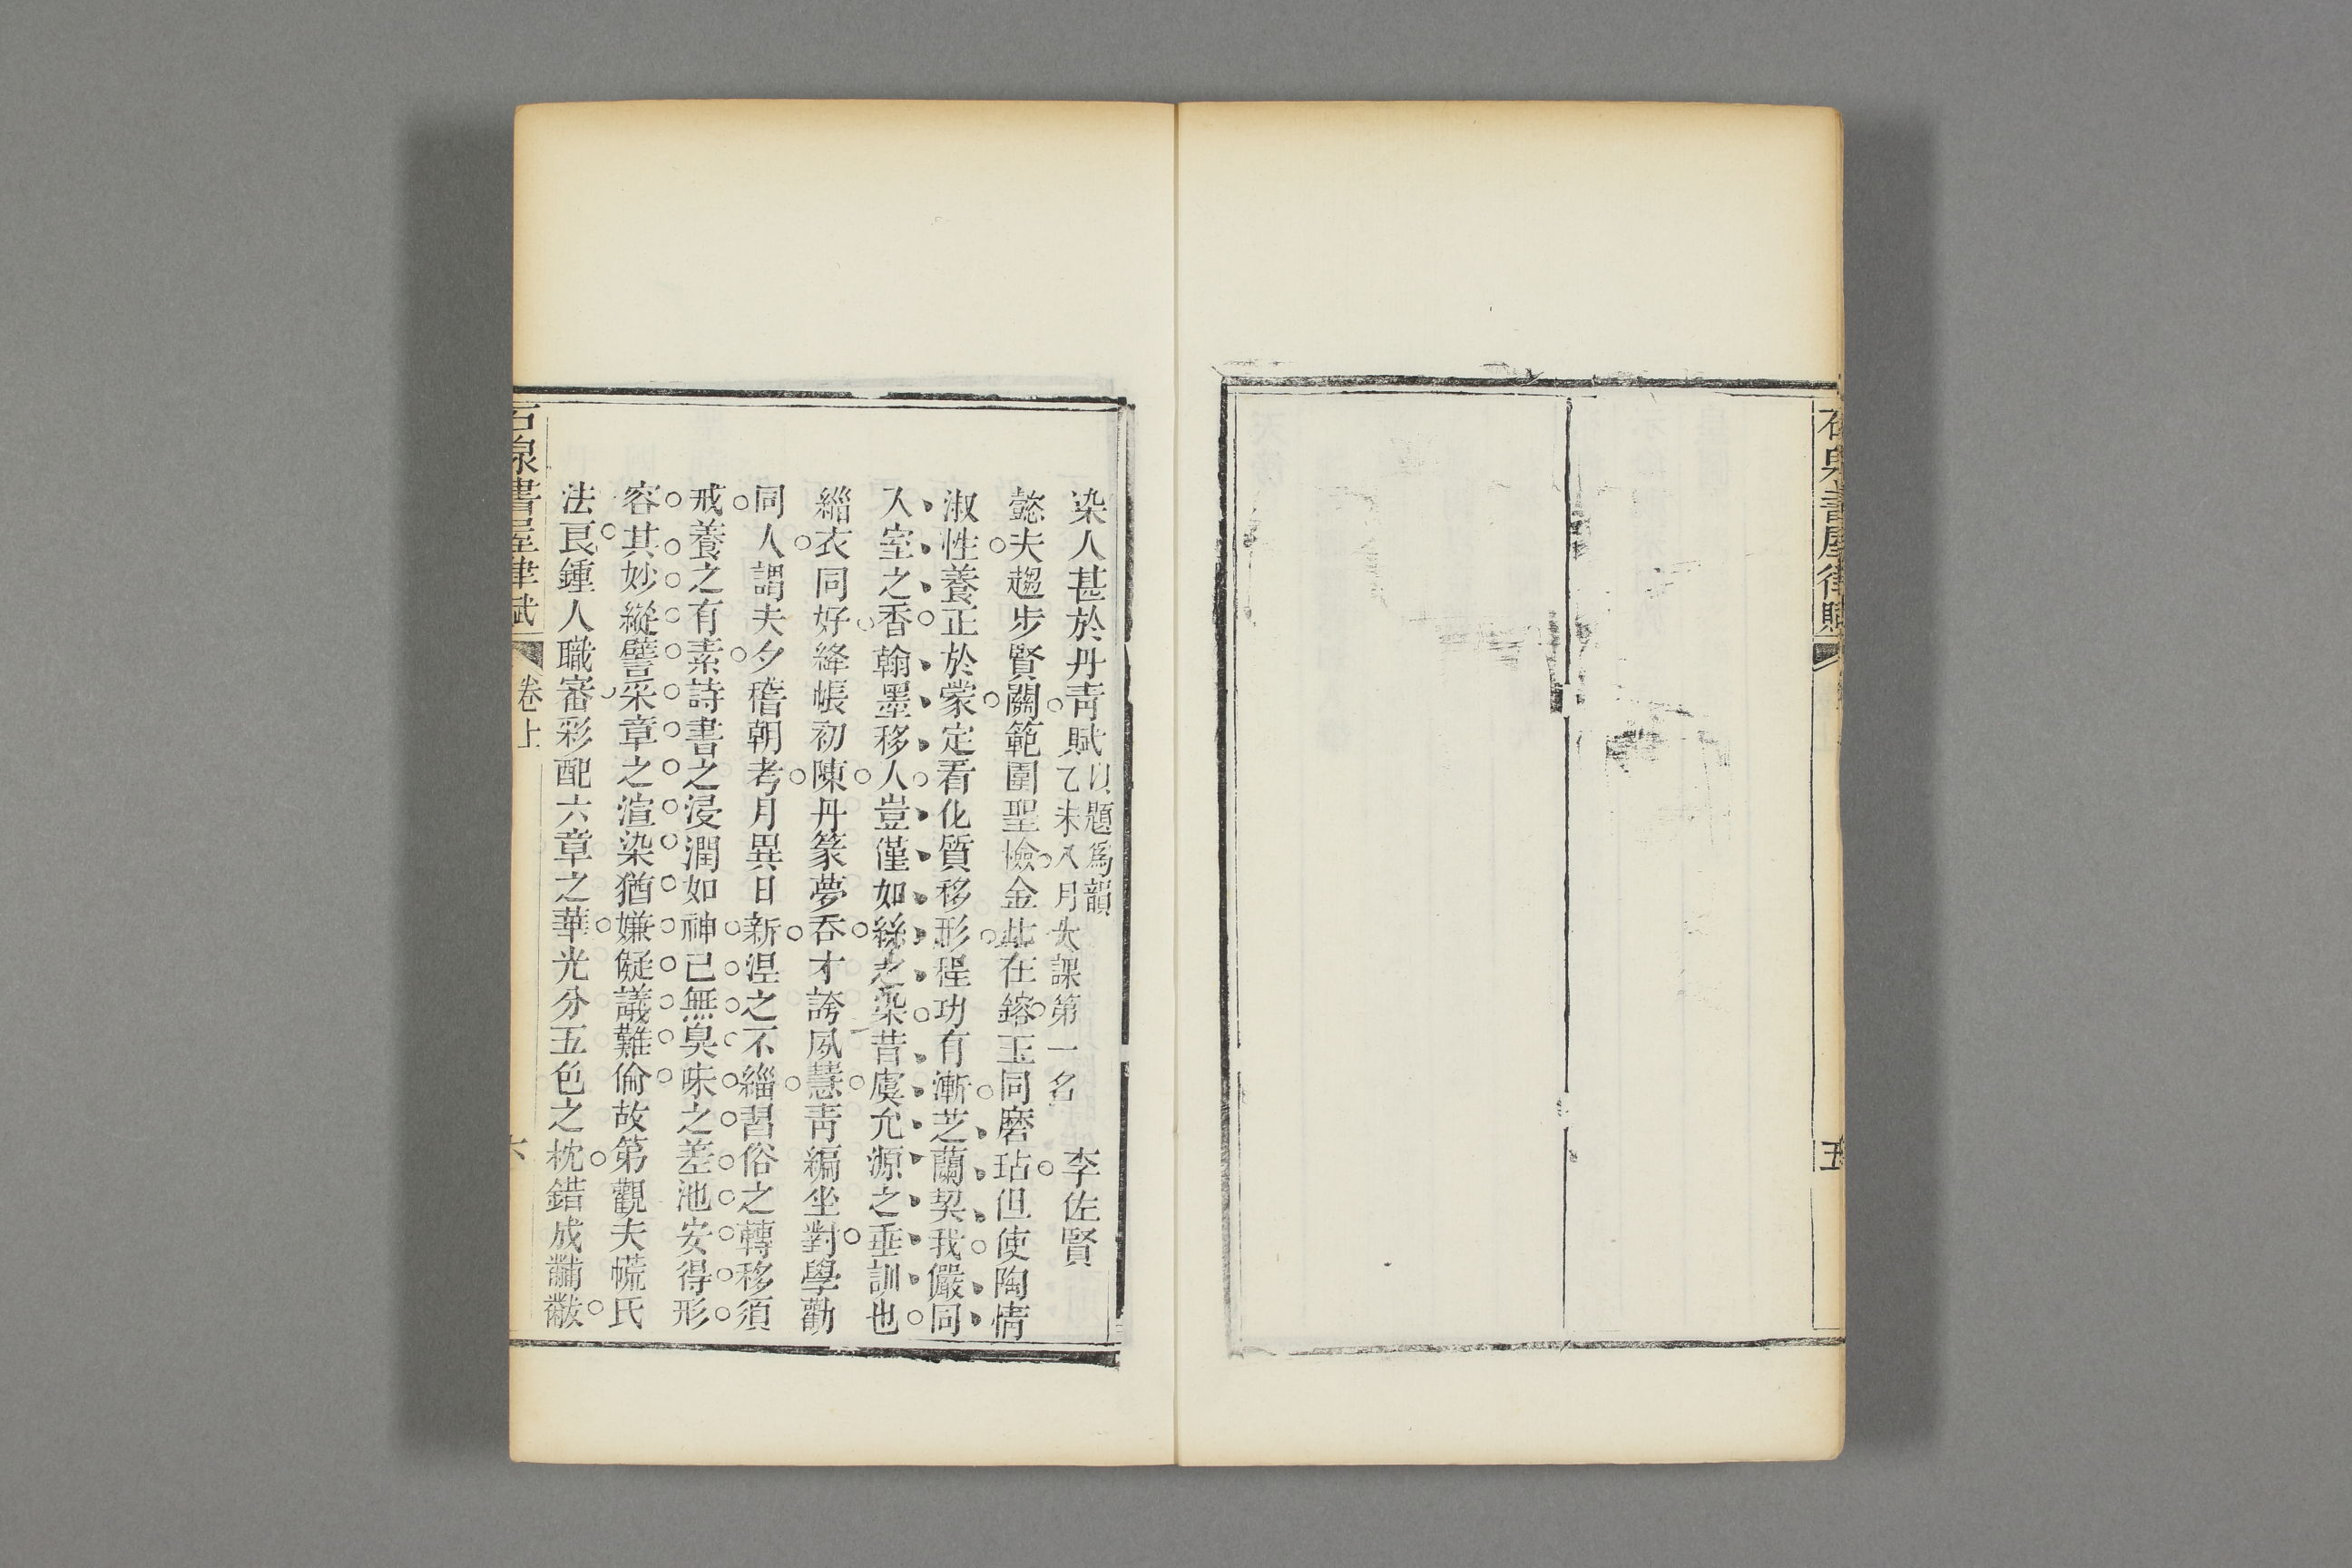 石泉書屋律賦
五
染人甚於丹靑賦 以題爲韻 乙未八月大課第一名 李佐賢
懿夫趨步賢關範圍聖檢金此在鎔玉同磨玷但使陶情
淑性養正於蒙定看化質移形程功有漸芝蘭契我儼同
入室之香翰墨移人豈僅如絲之染昔虞允源之垂訓也
緇衣同好絳帳初陳丹篆夢吞才誇夙慧靑編坐對學勸
同人謂夫夕稽朝考月異日新涅之不緇習俗之轉移須
戒養之有素詩書之浸潤如神已無臭味之差池安得形
容其妙縱譬采章之渲染猶嫌儗議難倫故第觀夫㡛氏
法良鍾人職審彩配六章之華光分五色之枕錯成黼黻
石泉書屋律賦 卷上 六